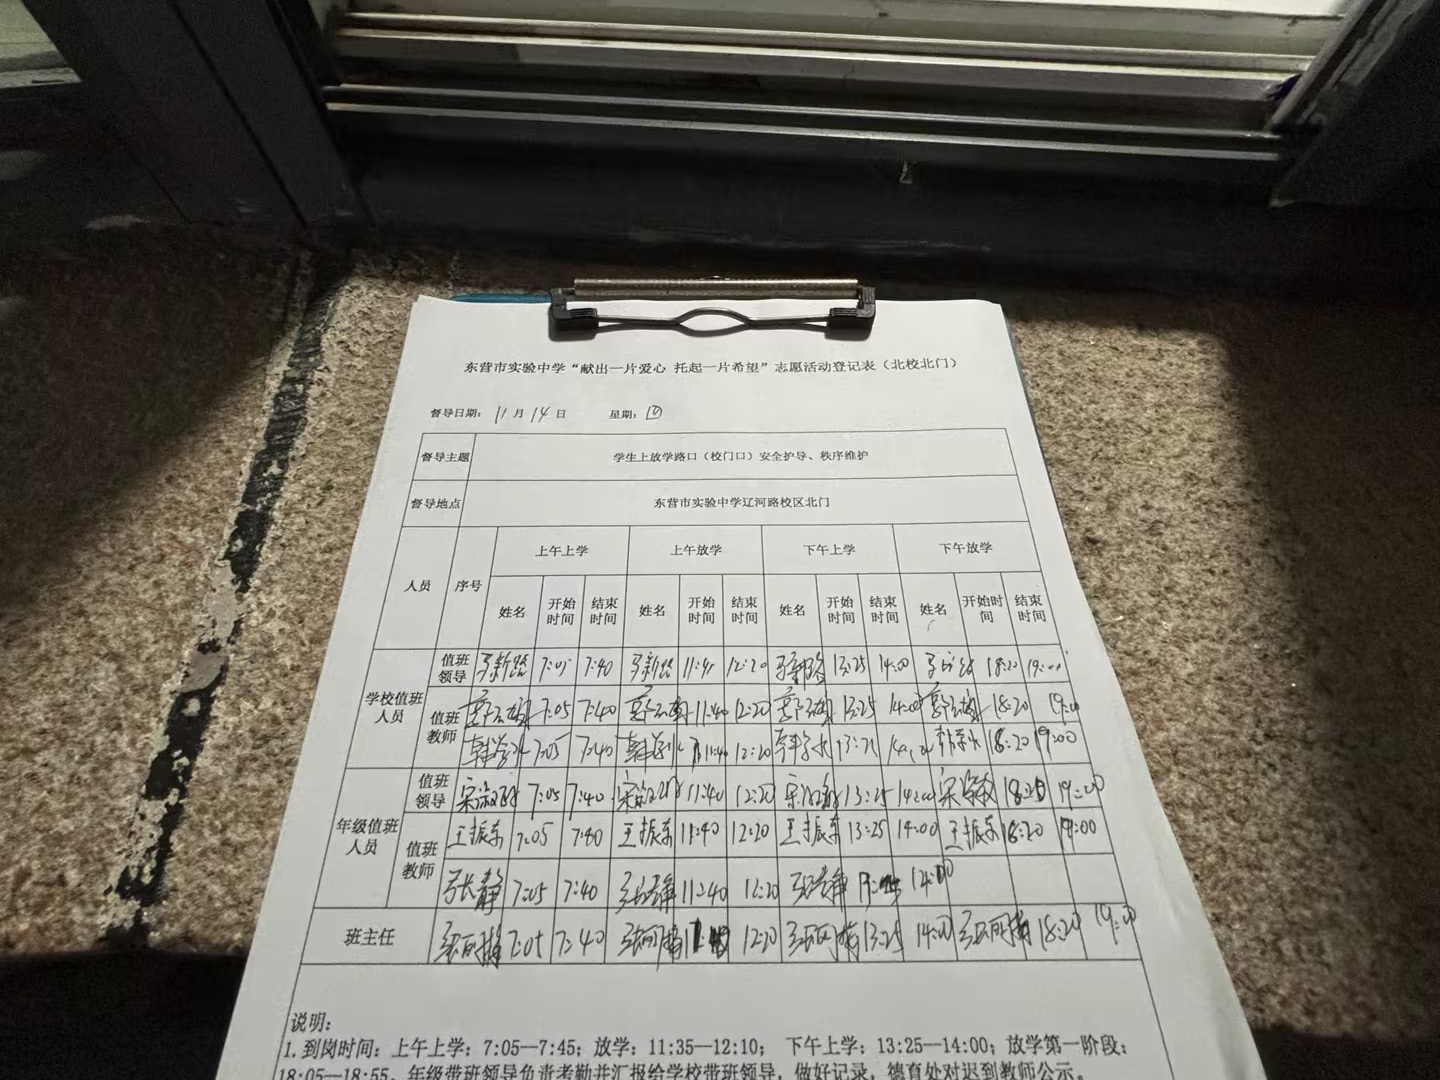 东营市实验中学“献出一片爱心 托起一片希望”志愿活动登记表（北校北门）
督导日期： 11 月 14 日 星期：四
督导主题 学生上放学路口（校门口）安全护导、秩序维护
督导地点 东营市实验中学辽河路校区北门
人员 序号 上午上学 上午放学 下午上学 下午放学
姓名 开始时间 结束时间 姓名 开始时间 结束时间 姓名 开始时间 结束时间 姓名 开始时间 结束时间
学校值班人员 值班领导 7:05 7:40 12:20 13:25 14:00 18:20 19:00
值班教师 7:05 7:40 11:40 12:20 13:25 14:00 18:20 19:00
7:05 7:40 11:40 12:20 18:20 19:00
年级值班人员 值班领导 7:05 7:40 11:40 12:20 13:25 14:00 19:00
值班教师 王振东 7:05 7:40 王振东 11:40 12:20 王振东 13:25 14:00 王振东 18:20 19:00
张静 7:05 7:40 张静 11:40 12:20 张静 14:00
班主任 7:05 7:40 12:20 13:25 14:00 18:20 19:00
说明：
1.到岗时间：上午上学：7:05—7:45；放学：11:35—12:10； 下午上学：13:25—14:00；放学第一阶段：
18:05—18:55。年级带班领导负责考勤并汇报给学校带班领导，做好记录，德育处对迟到教师公示。